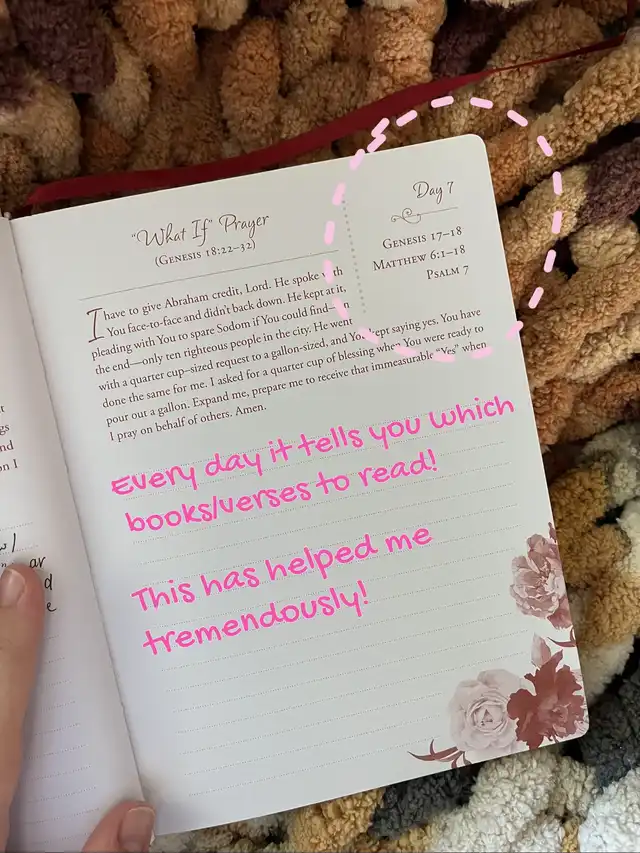 Day 7
GENESIS 17–18
MATTHEW 6:1–18
PSALM 7
"What If" Prayer
(GENESIS 18:22–32)
I have to give Abraham credit, Lord. He spoke with
You face-to-face and didn't back down. He kept at it,
pleading with You to spare Sodom if You could find—in
the end—only ten righteous people in the city. He went
with a quarter cup–sized request to a gallon-sized, and You kept saying yes. You have
done the same for me. I asked for a quarter cup of blessing when You were ready to
pour out a gallon. Expand me, prepare me to receive that immeasurable "Yes" when
I pray on behalf of others. Amen.
Every day it tells you which
books/verses to read!
This has helped me
tremendously!